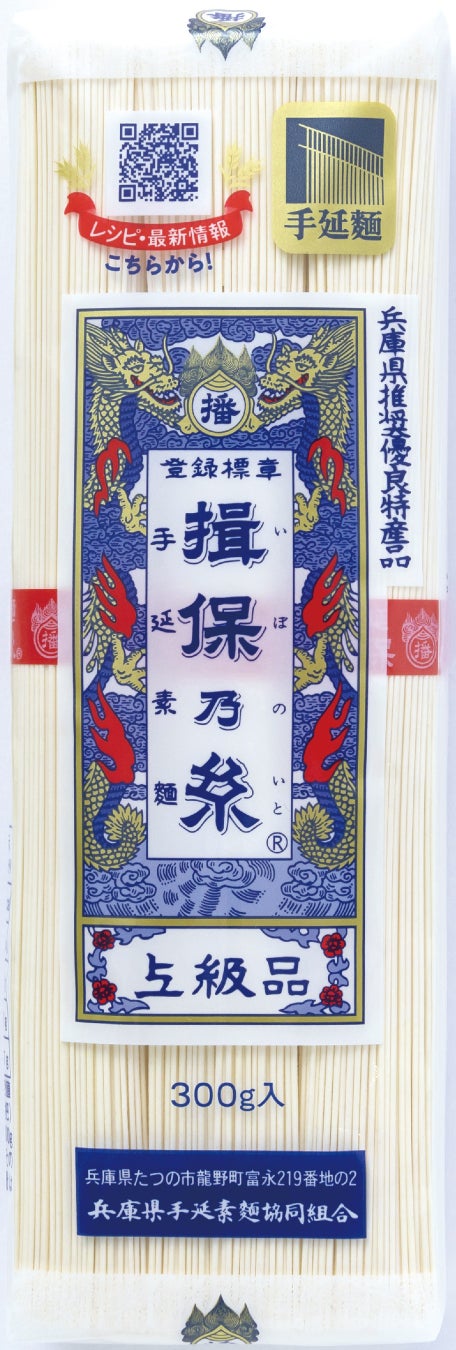 播
レシピ・最新情報
こちらから!
手延麺
兵庫県推奨優良特産品
播
登録標章
揖保乃糸
いぼのいと
手延素麵
®
上級品
播
播
300g入
兵庫県たつの市龍野町富永219番地の2
兵庫県手延素麵協同組合